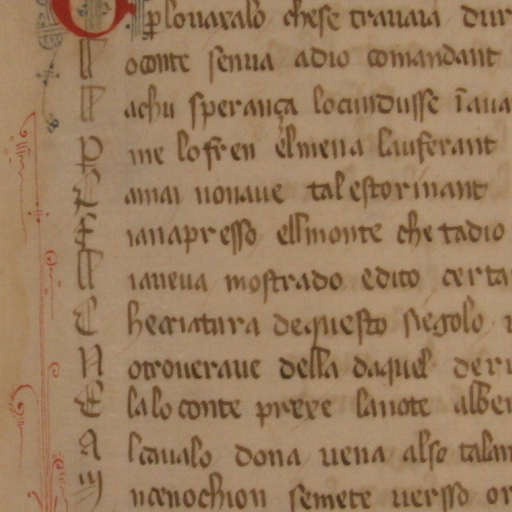 plouaxalo chese trauaia dur
L oconte senua adio comandant
L achu sperança locundusse i aua
P me lo fren elmena lauferant
C amai nonaue tal estormant
F ianapresso ellmonte che tadio
L iaueua mostrado edito certa
C hecriatura dequesto siegolo
N otroueraue della daquel deri
E lalo conte prexe lanote alber
A lcaualo dona uena also talan
M nochion semete uersso or